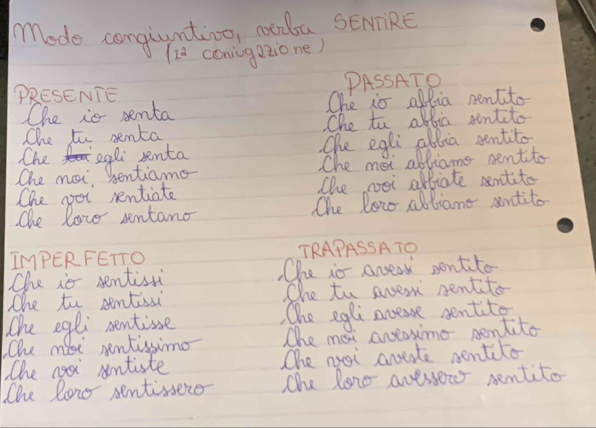 Modo congiuntivo, verbo SENTIRE
(1ª coniugazione)
PRESENTE
Che io senta
Che tu senta
Che egli senta
Che noi sentiamo
Che voi sentiate
Che loro sentano
PASSATO
Che io abbia sentito
Che tu abbia sentito
Che egli abbia sentito
Che noi abbiamo sentito
Che voi abbiate sentito
Che loro abbiano sentito
IMPERFETTO
Che io sentissi
Che tu sentissi
Che egli sentisse
Che noi sentissimo
Che voi sentiste
Che loro sentissero
TRAPASSATO
Che io avessi sentito
Che tu avessi sentito
Che egli avesse sentito
Che noi avessimo sentito
Che voi aveste sentito
Che loro avessero sentito